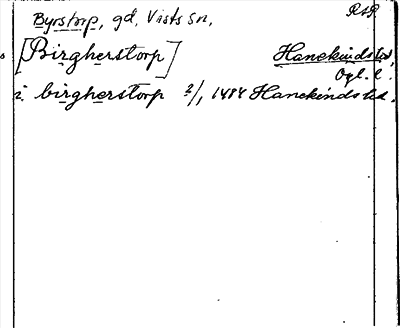 Byrstorp, gd, Vists sn, RAP.
[Birgherstorp] Hanekinds hd,
Ögl. l.
i birgherstorp 2/1 1484 Hanekinds hd.